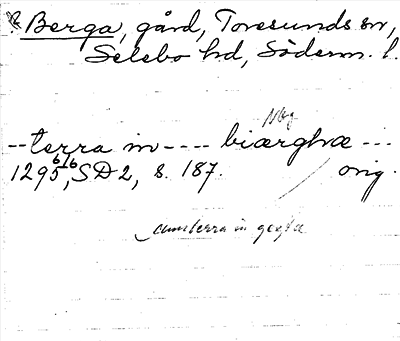 ? Berga, gård, Toresunds sn,
Selebo hd, Söderm. l.
Nbg
--terra in ---- biærghæ ---
1295 6/6, SD 2, s. 187. orig.
cum terra in